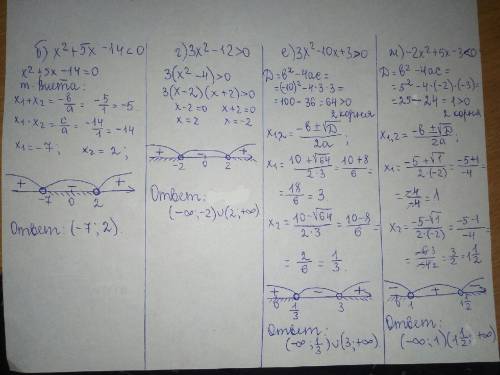 б) x²+5x-14<0
x²+5x-14=0
т. Виета:
x₁+x₂=-b/a=-5/1=-5
x₁·x₂=c/a=-14/1=-14
x₁=-7; x₂=2;
+ -7 0 2 +
Ответ: (-7; 2).
г) 3x²-12>0
3(x²-4)>0
3(x-2)(x+2)>0
x-2=0 x+2=0
x=2 x=-2
+ -2 - 2 +
Ответ:
(-∞;-2)∪(2;+∞)
е) 3x²-10x+3>0
D=b²-4ac=
=(-10)²-4·3·3=
=100-36=64>0
2 корня
x₁,₂=-b±√D/2a;
x₁=10+√64/2·3=10+8/6=
=18/6=3
x₂=10-√64/2·3=10-8/6=
=2/6=1/3.
+ 1/3 - 3 +
Ответ:
(-∞;1/3)∪(3;+∞)
м) -2x²+5x-3<0
D=b²-4ac=
=5²-4·(-2)·(-3)=
=25-24=1>0
2 корня
x₁,₂=-b±√D/2a;
x₁=-5+√1/2·(-2)=-5+1/-4=
=-4/-4=1
x₂=-5-√1/2·(-2)=-5-1/-4=
=3/2=1 1/2
- 1 + 1 1/2 -
Ответ:
(-∞;1)(1 1/2;+∞)